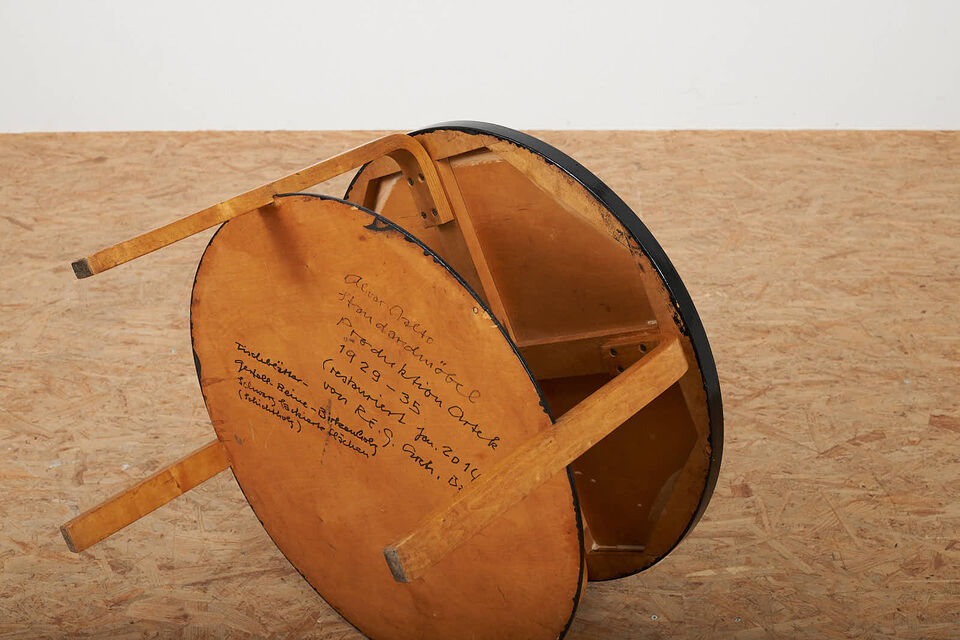 Alvar Aalto
standardmöbel
Produktion Artek
1929-35
(restauriert Jan. 2014
von R.E.G. Arch. B:
Tischblätter-
gestell-Beine-Birkenholz
schwarz lackierte Flächen
(Schichtholz)